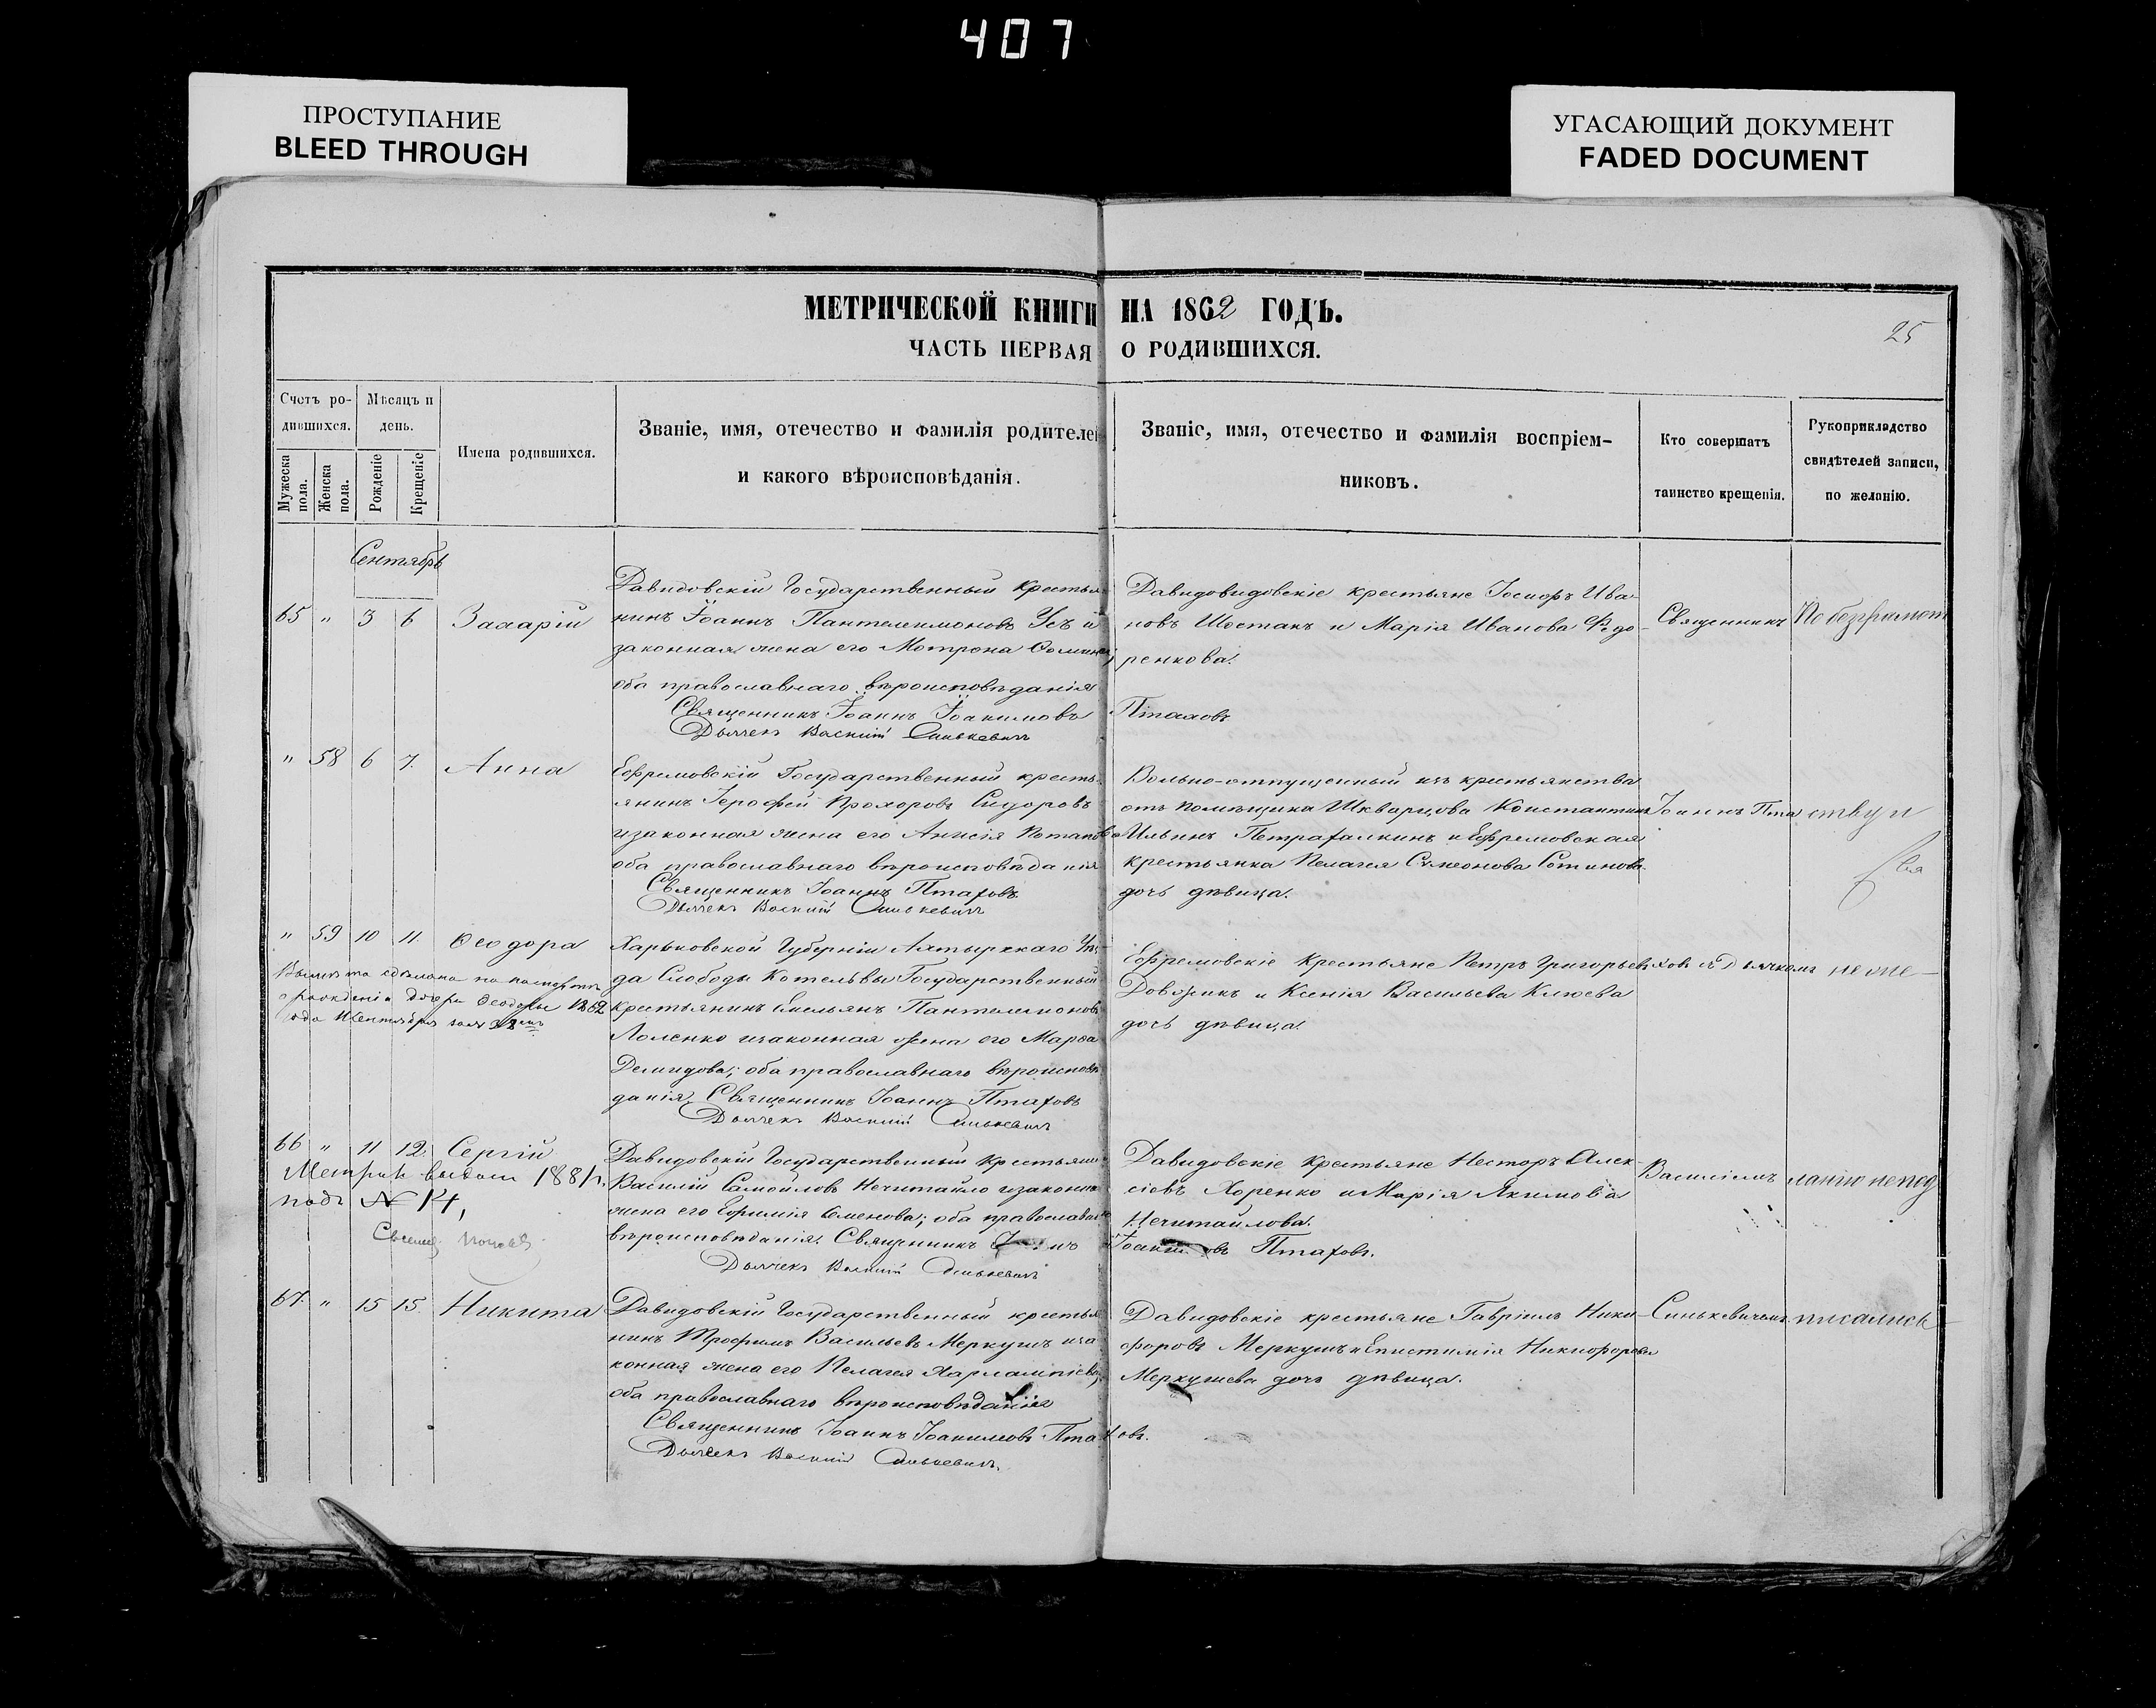 407
ПРОСТУПАНИЕ
BLEED THROUGH
УГАСАЮЩИЙ ДОКУМЕНТ
FADED DOCUMENT
МЕТРИЧЕСКОЙ КНИГИ НА 1862 ГОДЪ.
25
ЧАСТЬ ПЕРВАЯ О РОДИВШИХСЯ.
Счетъ ро-
дившихся.
Мужеска
пола.
Женска
пола.
Мѣсяцъ и
день.
Рожденіе
Крещеніе
Имена родившихся.
Званіе, имя, отечество и фамилія родителей
и какого вѣроисповѣданія.
Званіе, имя, отечество и фамилія воспріем-
никовъ.
Кто совершатъ
таинство крещенія.
Рукоприкладство
свидѣтелей записи,
по желанію.
Сентябрь
65 " 3 6 Захарій
Давидовскій Государственный крестья
нинъ Іоаннъ Пантелеимоновъ Усъ и
законная жена его Мотрона
оба православнаго вѣроисповѣданія
Священникъ Іоаннъ Іоакимовъ Птаховъ
Дьячекъ Василій Синькевичъ
Давидовидовскіе крестьяне Іосифъ Ива-
новъ Шостакъ и Марія Иванова Федо-
ренкова.
Священникъ
По безграмот
" 58 6 7. Анна
Ефремовскій Государственный кресть-
янинъ Іерофей Прохоровъ Сидоровъ
и законная жена его Анисія Потапова
оба православнаго вѣроисповѣданія
Священникъ Іоаннъ Птаховъ
Дьячекъ Василій Синькевичъ
Вольно-отпущенный изъ крестьянства
отъ помѣщика Шкварцова Константинъ
Ильинъ и Ефремовская
крестьянка Пелагея Симеонова
дочь дѣвица.
Іоаннъ Пта
ству и
" 59 10 11. Ѳеодора
на паспортѣ
о рожденіи дочери Ѳеодоры 1862
года
Харьковской Губерніи Ахтырскаго Уѣз-
да Слободы Котельвы Государственный
крестьянинъ Емельянъ Пантелеимоновъ
и законная жена его Марѳа
Демидова; оба православнаго вѣроисповѣ
данія, Священникъ Іоаннъ Птаховъ
Дьячекъ Василій Синькевичъ
Ефремовскіе крестьяне Петръ Григорьевъ
Довжикъ и Ксенія Васильева Клюева
дочь дѣвица.
ховъ съ Дьячкомъ
не же-
66 " 11 12. Сергій
Метрика выдана 1881 г.
подъ № 14,
Давидовскій Государственный крестьянинъ
Василій Самойловъ Нечитайло и законная
жена его Ефимія Семенова; оба православнаго
вѣроисповѣданія. Священникъ Іоаннъ Іоакимовъ Птаховъ.
Дьячекъ Василій Синькевичъ
Давидовскіе крестьяне Несторъ Алек-
сіевъ Хоренко и Марія Якимова
Нечитайлова.
Василіемъ
ланію непод
67. " 15 15. Никита
Давидовскій Государственный крестья
нинъ Трофимъ Васильевъ Меркушъ и за-
конная жена его Пелагея Харлампіева,
оба православнаго вѣроисповѣданія
Священникъ Іоаннъ Іоакимовъ Птаховъ.
Дьячекъ Василій Синькевичъ.
Давидовскіе крестьяне Гавріилъ Ники-
форовъ Меркушъ и Епистимія Никифорова
Меркушева дочь дѣвица.
Синькевичемъ
писались